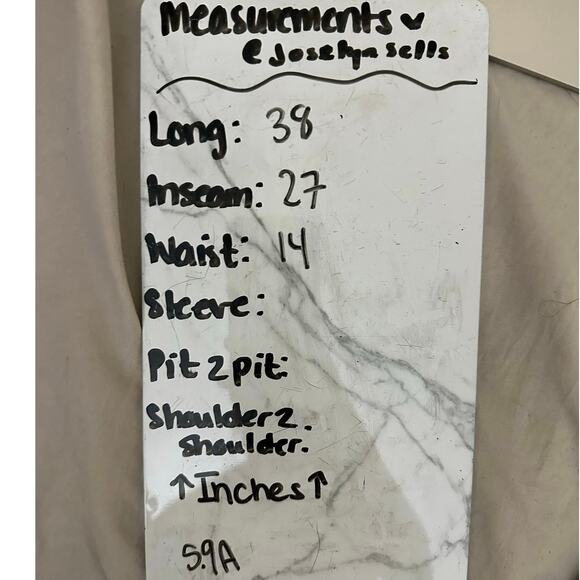 Measurements ♥
@Joselynsells
Long: 38
Inseam: 27
Waist: 14
Sleeve:
Pit 2 pit:
Shoulder 2.
Shoulder.
↑Inches↑
5.9A